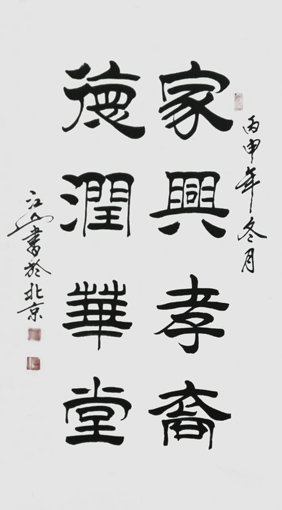 丙申年冬月
家興孝裔
德潤華堂
江山書於北京